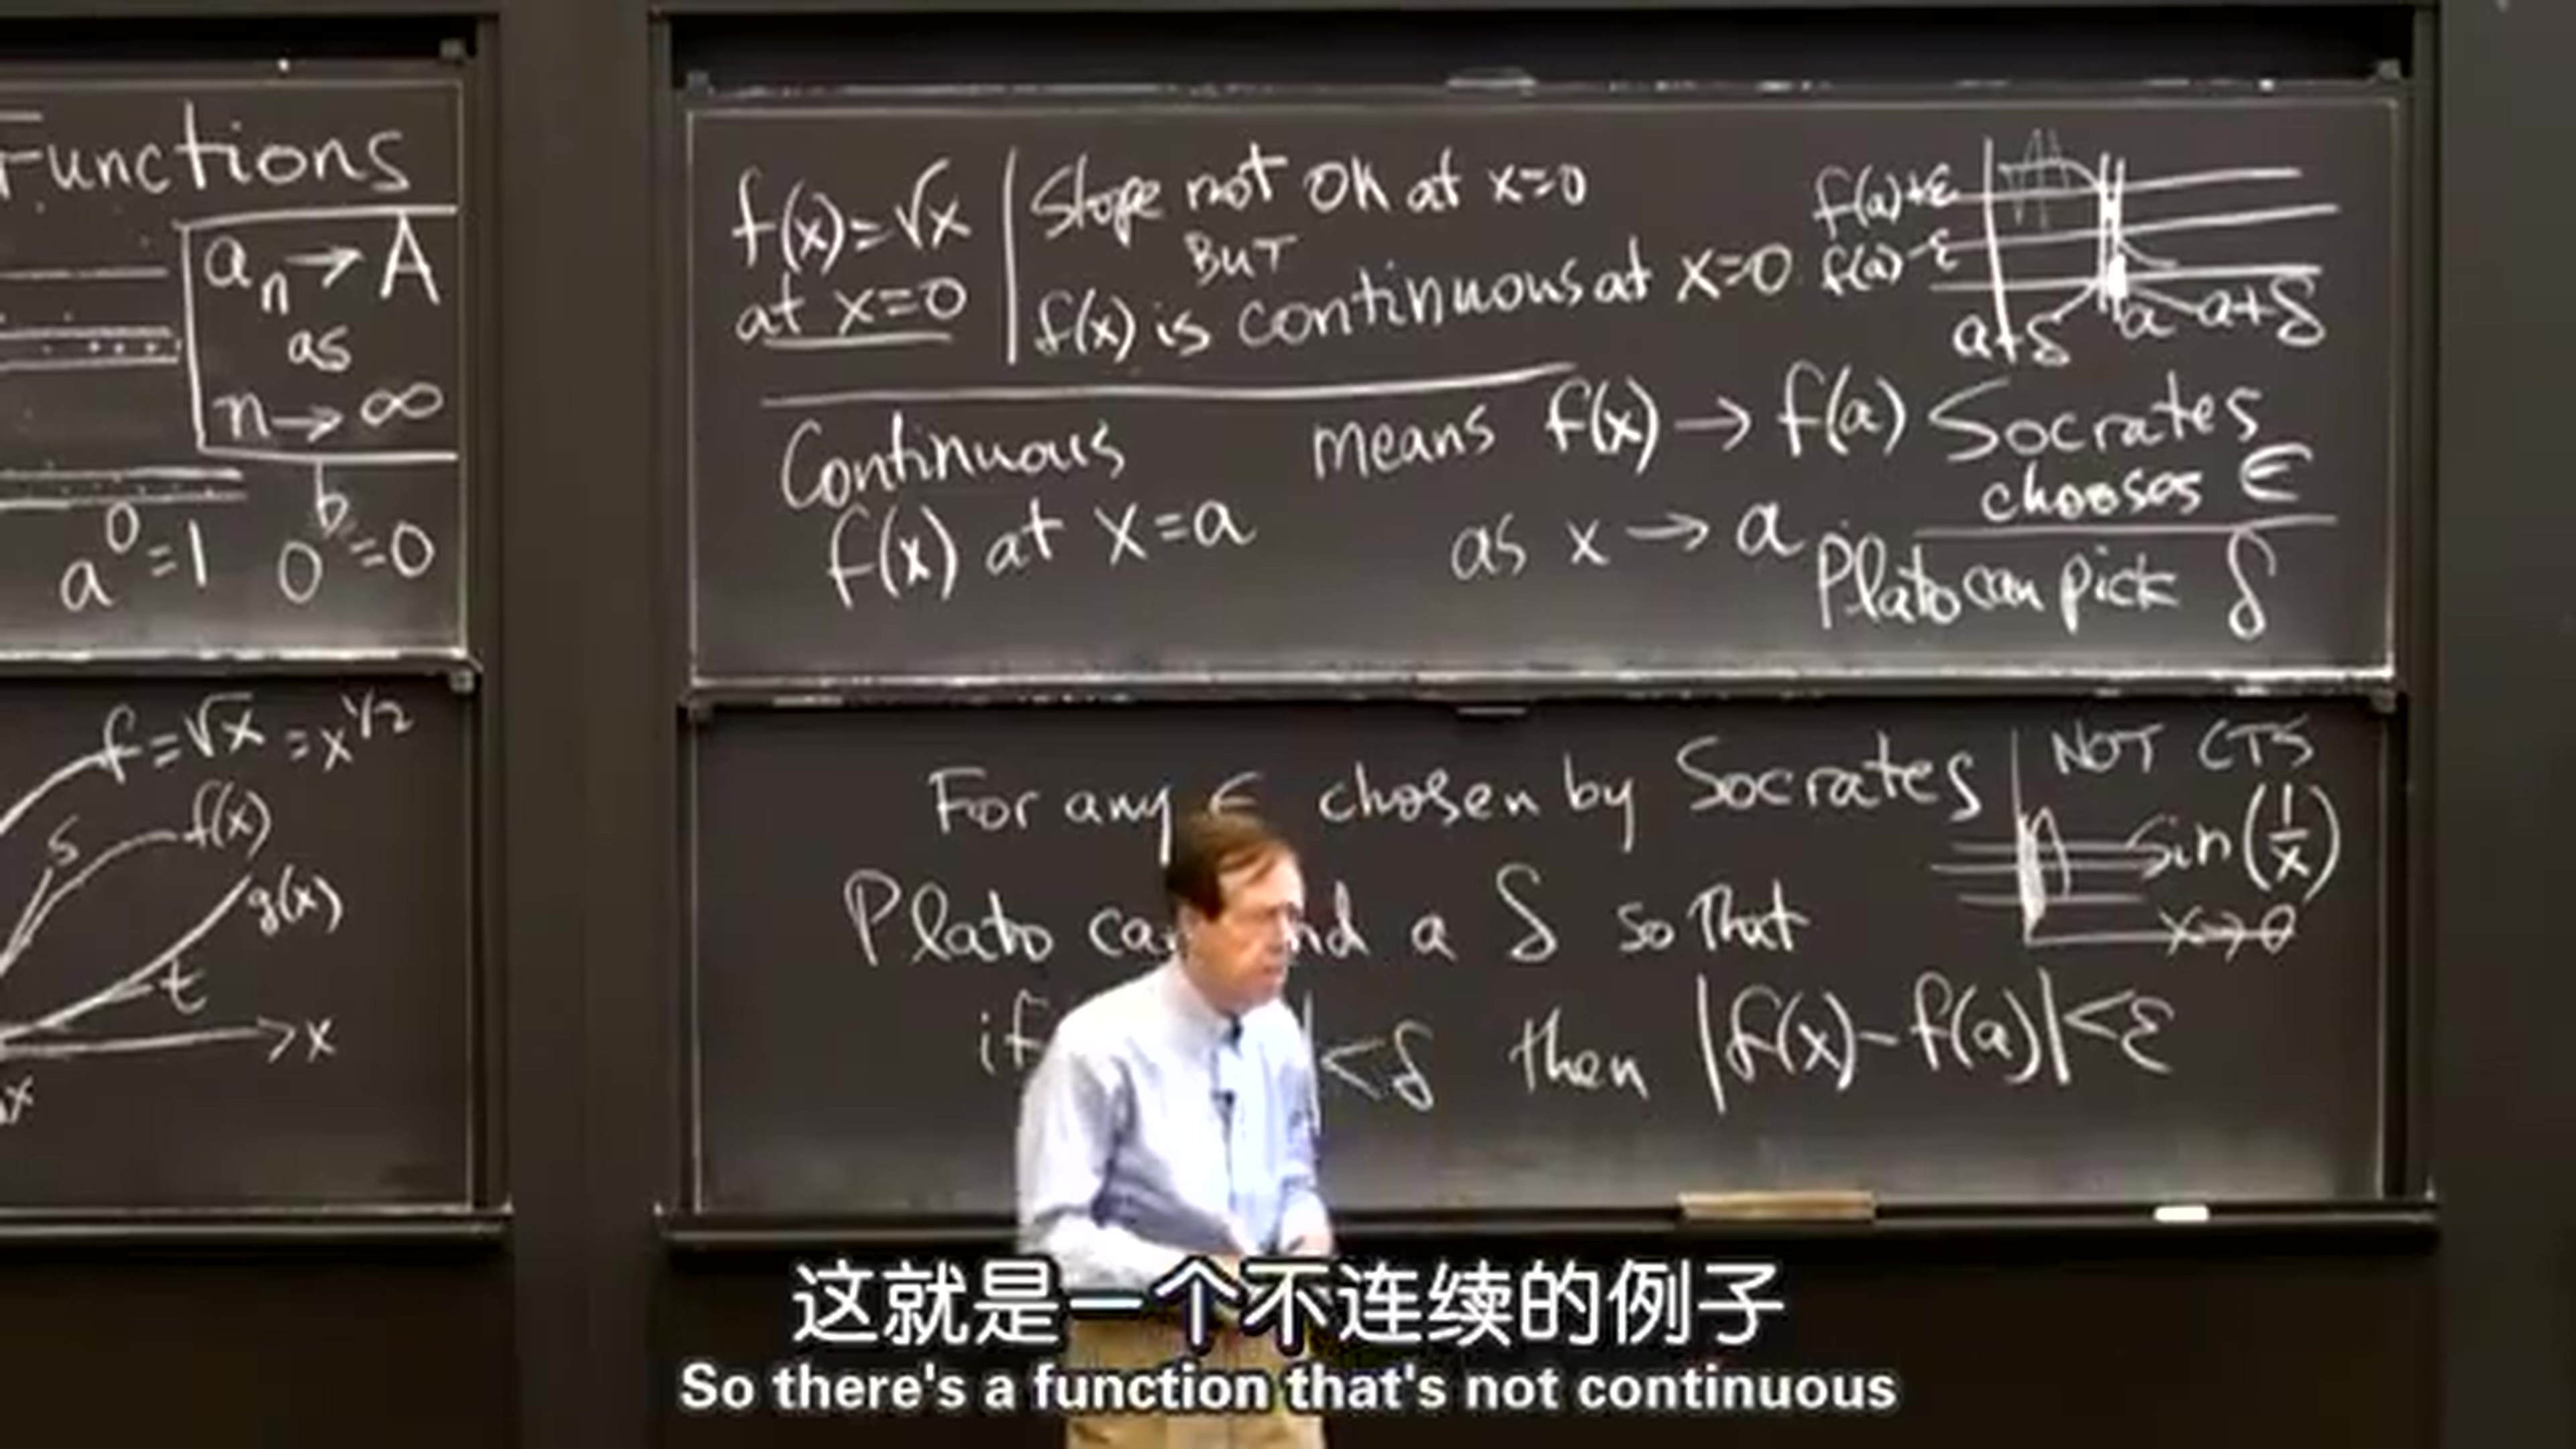 Functions
aₙ → A
as
n → ∞
a⁰=1 0ᵇ=0
f=√x=x^1/2
s
f(x)
g(x)
t
x
f(x)=√x
at x=0
Slope not OK at x=0
BUT
f(x) is continuous at x=0
f(a)+ε
f(a)-ε
a+δ a a+δ
Continuous means f(x) → f(a)
f(x) at x=a as x → a
Socrates
chooses ε
Plato can pick δ
For any ε chosen by Socrates
Plato a δ so that
if <δ then |f(x)-f(a)|<ε
NOT CTS
sin(1/x)
x→0
这就是一个不连续的例子
So there's a function that's not continuous